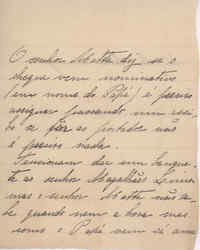 O senhor Motta diz se o
cheque vem nominativo
(em nome do Papá) é preciso
assignar passando um reci-
bo se fôr ao portador não
é preciso nada.
Tencionam dar um banque-
te ao senhor Magalhães Lima
mas o senhor Motta não sa-
be quando nem a hora nem
como o Papá vem cá